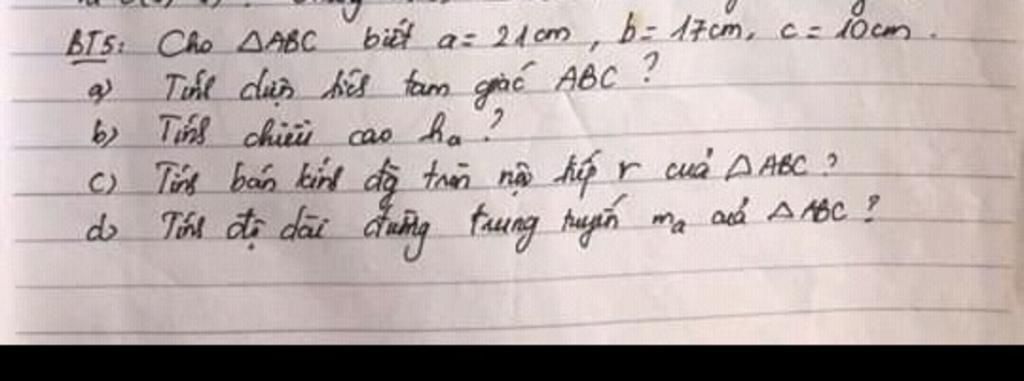 BT5: Cho △ABC biết a= 21cm, b= 17cm, c= 10cm.
a) Tính diện tích tam giác ABC?
b) Tính chiều cao hₐ?
c) Tính bán kính đg tròn nội tiếp r của △ABC?
d) Tính độ dài đường trung tuyến mₐ của △ABC?